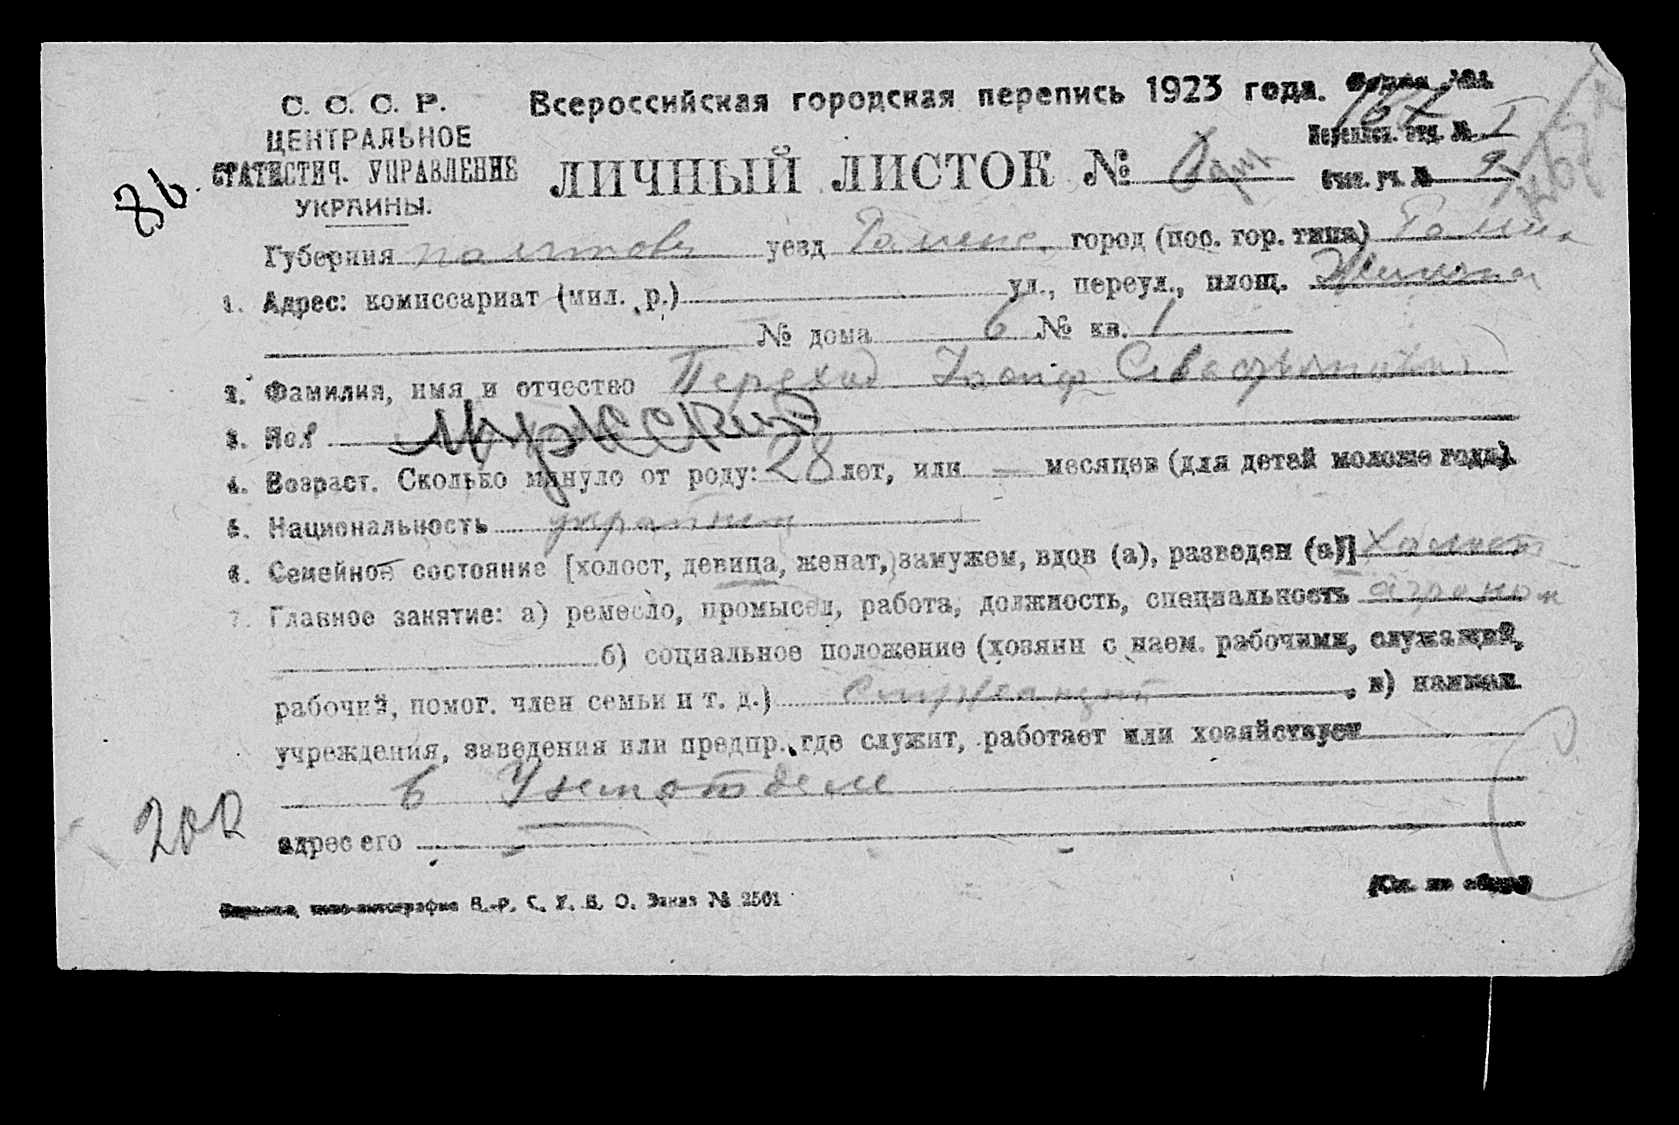 С. С. С. Р.
ЦЕНТРАЛЬНОЕ
СТАТИСТИЧ. УПРАВЛЕНИЕ
УКРАИНЫ.
86.
Всероссийская городская перепись 1923 года.
Переписн. отд. № I
ЛИЧНЫЙ ЛИСТОК № Один
Счет. уч. № 9
Губерния Полтовс уезд Роменс. город (пос. гор. типа) Ромни
1. Адрес: комиссариат (мил. р.) ул., переул., площ.
№ дома 6 № кв. 1
2. Фамилия, имя и отчество Переход Іосиф Севастьянович
3. Пол мужской
4. Возраст. Сколько минуло от роду: 28 лет, или — месяцев (для детей моложе года)
5. Национальность украинец
6. Семейное состояние [холост, девица, женат, замужем, вдов (а), разведен (а)] холост
7. Главное занятие: а) ремесло, промысел, работа, должность, специальность агроном
б) социальное положение (хозяин с наем. рабочими, служащий,
рабочий, помог. член семьи и т. д.) Служащий, в) наимен.
учреждения, заведения или предпр., где служит, работает или хозяйствует
в Уземотделе
200
адрес его
Заказ № 2501
(См. на обор.)